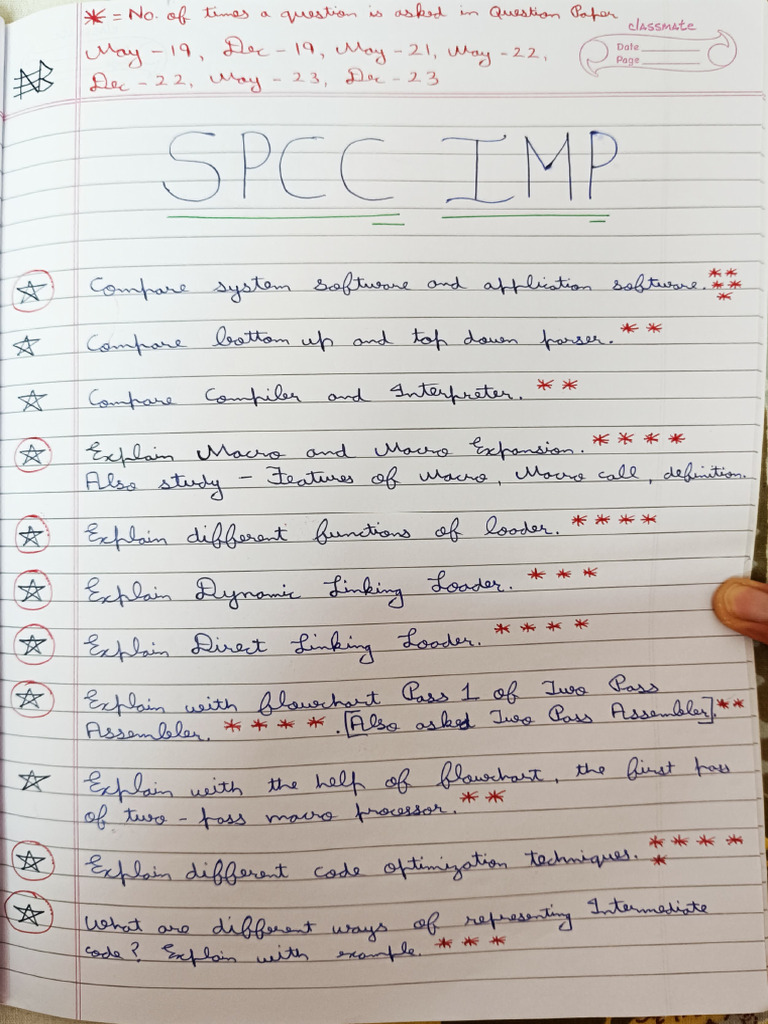 * = No. of times a question is asked in Question Paper
classmate
May - 19, Dec - 19, May - 21, May - 22,
Date
Page
Dec - 22, May - 23, Dec - 23
NB
SPCC IMP
Compare system software and application software. *****
Compare bottom up and top down parser. **
Compare Compiler and Interpreter. **
Explain Macro and Macro Expansion. ****
Also study - Features of Macro, Macro call, definition.
Explain different functions of loader. ****
Explain Dynamic Linking Loader. ***
Explain Direct Linking Loader. ****
Explain with flowchart Pass 1 of Two Pass
Assembler. ****. [Also asked Two Pass Assembler].**
Explain with the help of flowchart, the first pass
of two - pass macro processor. **
Explain different code optimization techniques. *****
What are different ways of representing Intermediate
code? Explain with example. ***